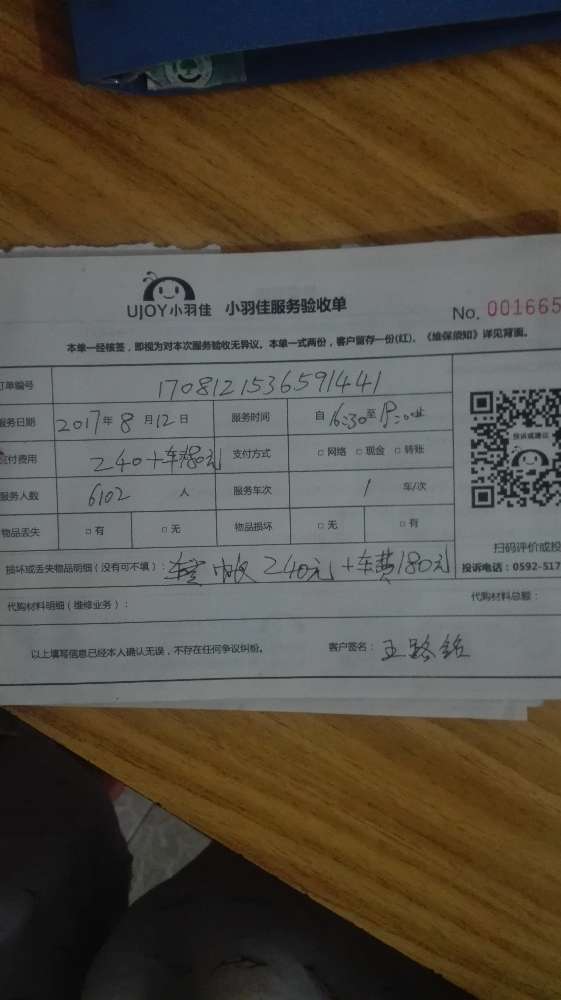 UJOY小羽佳 小羽佳服务验收单
No. 001665
本单一经核签，即视为对本次服务验收无异议。本单一式两份，客户留存一份(红)。《维保须知》详见背面。
订单编号 1708121536591441
服务日期 2017年8月12日 服务时间 自16:30至19:00止
支付费用 240+车费180元 支付方式 □网络 □现金 □转账
服务人数 6102 人 服务车次 1 车/次
物品丢失 □有 □无 物品损坏 □无 □有
投诉或建议
扫码评价或投
损坏或丢失物品明细（没有可不填）： 240元+车费180元
投诉电话：0592-517
代购材料明细（维修业务）： 代购材料总额：
以上填写信息已经本人确认无误，不存在任何争议纠纷。 客户签名：王路铭